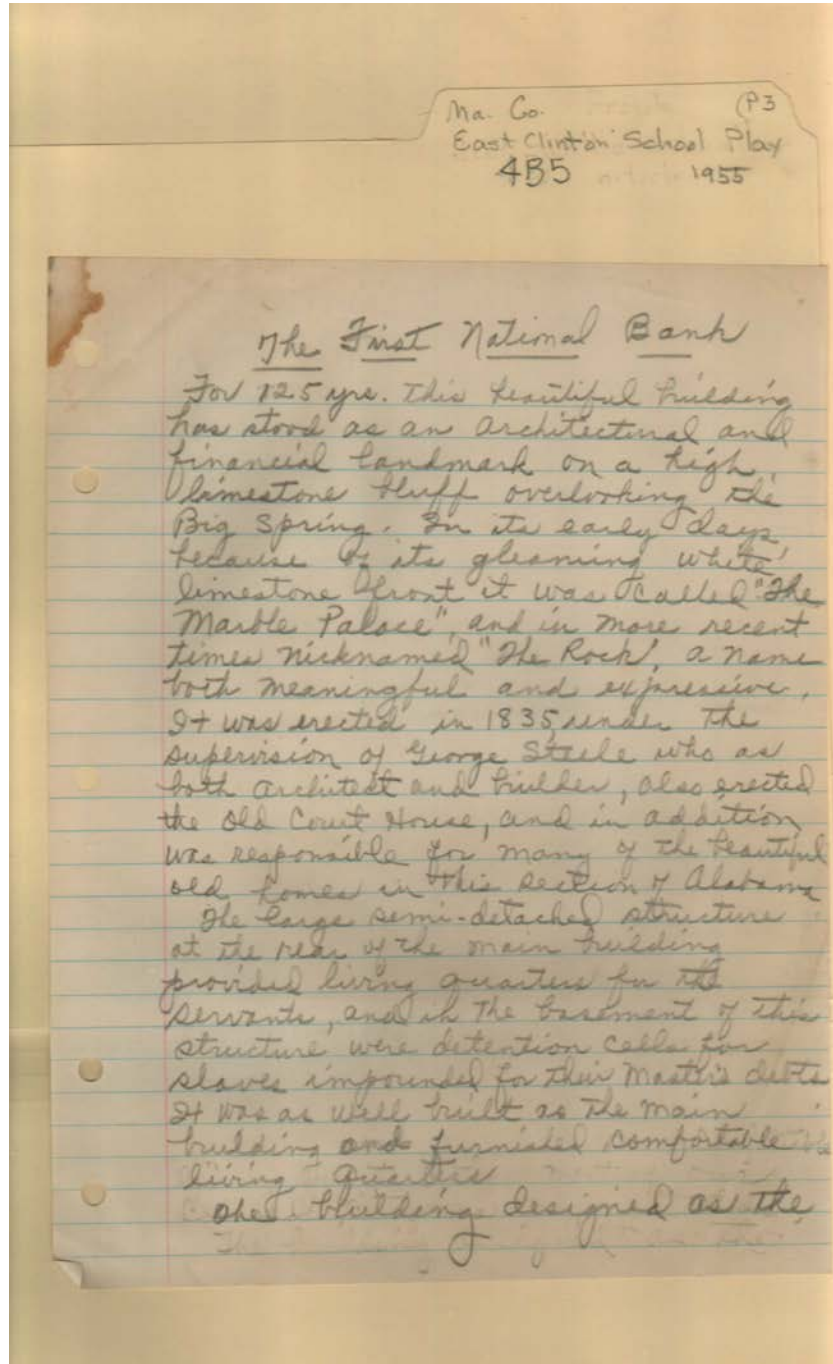 Ma. Co. (P3
East Clinton School Play
4B5 1955
The First National Bank
For 125 yrs. this beautiful building
has stood as an architectural and
financial landmark on a high,
limestone bluff overlooking the
Big Spring. In its early days,
because of its gleaming white
limestone front it was called "The
Marble Palace", and in more recent
times nicknamed "The Rock", a name
both meaningful and expressive.
It was erected in 1835, under the
supervision of George Steele who as
both architect and builder, also erected
the old Court House, and in addition,
was responsible for many of the beautiful
old homes in this section of Alabama
The large semi-detached structure
at the rear of the main building
provided living quarters for the
servants, and in the basement of this
structure were detention cells for
slaves impounded for their Master's debts.
It was as well built as the main
building and furnished comfortable
living quarters
The building designed as the